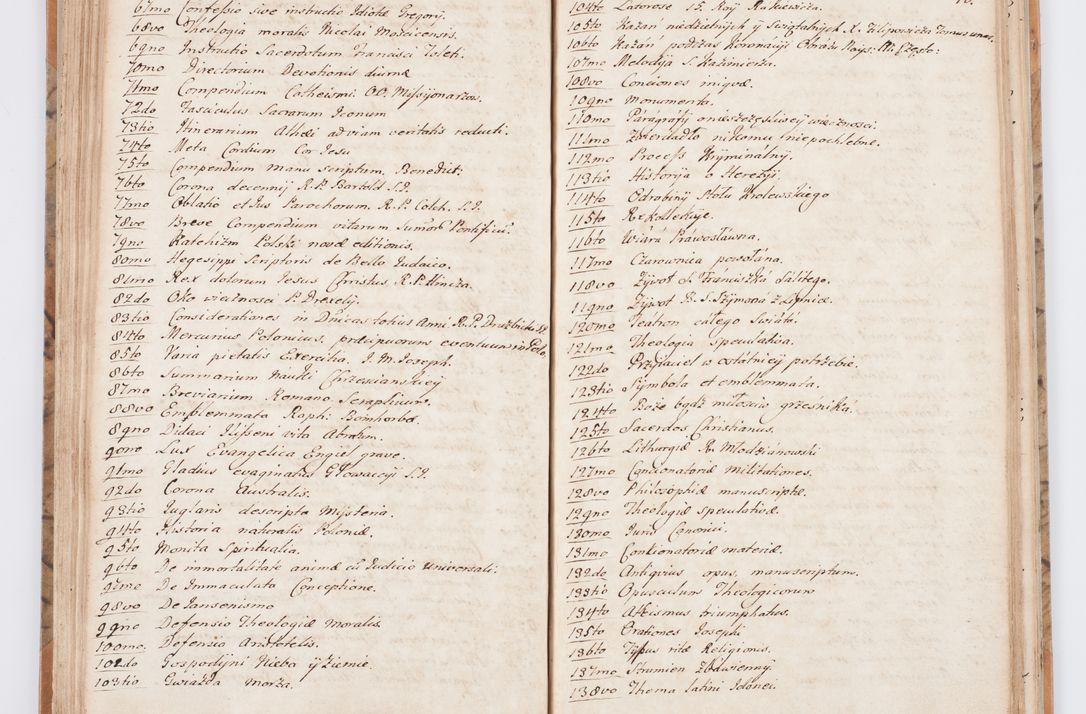 67mo Confessio sive instructio Idiotæ Gregorij.
68vo Theologia moralis Nicolai Mosicensis.
69no Instructio Sacerdotum Francisci Toleti.
70mo Directorium Devotionis diurnæ
71mo Compendium Catheismi OO. Missyonarzow.
72do Fasciculus Sacrarum Iconum
73tio Itinerarium Athei ad viam veritatis reducti.
74to Meta Cordium Cor Jesu
75to Compendium manu scriptum, Benedict:
76to Corona decennij R. P. Bartold S.J.
77mo Oblatio et Jus Parochorum. R. P. Colch. S.J.
78vo Breve Compendium vitarum Sumor Pontificū.
79no Katehizm Polski novæ editionis.
80mo Hegesippi Scriptoris de Bello Judaico.
81mo Rex dolorum Jesus Christus. R. P. Hincza.
82do Oko wiecznosci P. Drexelij.
83tio Considerationes in Dnicas totius Anni R. P. Druzbicki S.J.
84to Mercurius Polonicus, præcipuorum eventuum in Polo.
85to Varia pietatis Exercitia. J. M. Joseph.
86to Summarium Nauki Chrzescianskiey
87mo Breviarium Romano Seraphicum.
88vo Emblemmata Raph: Bomhorba.
89no Didaci Nisseni vita Abrahm.
90mo Lux Evangelica Engiel grave.
91mo Gladius evaginatus Głowaccyi S.J.
92do Corona Australis.
93tio Juglaris descripta Misteria.
94to Historia naturalis Poloniæ.
95to Monita Spiritualia.
96to De immortalitate animæ cū Judicio universali.
97mo De Immaculata Conceptione.
98vo De Jansenismo
99no Defensio Theologiæ Moralis.
100mo Defensio Aristotelis.
102do Gospodijni Nieba ÿ Ziemie.
103tio Gwiazda Morza.
104to Latorosc 15. Xiąz Rutkiewicza.
105to Kazań niedzielnÿch ÿ Swiątalnÿch X. Filipowicza Tomus unus.
106to Kazań podczas Koronacÿi Obrazu Nays: M: Często:
107mo Melodÿja S. Kazimierza.
108vo Conciones iniqvæ.
109no Monumenta.
110mo Paragrafÿ o nieszczęsliwey wieczności.
111mo Zwierciadło nikomu niepochlebne.
112mo Process Krÿminálnÿ.
113tio Historija o Herezÿi.
114to Odrobinÿ Stołu Krolewskiego
115to Rekollekcÿe.
116to Wiará Práwosławna.
117mo Czarownica powołána.
118vo Zÿwot S. Fránciszká Sálezego.
119no Zÿwot B. S. Szÿmona z Lipnice.
120mo Teátron całego Swiátá.
121mo Theologia speculativa.
122do Przÿiaciel w ostátniey potrzebie.
123tio Sÿmbola et emblemmata.
124to Boże bądz miłosciw grzésniká.
125to Sacerdos Christianus.
126to Lithurgiæ X. Młodzianowski
127mo Concionatoriæ militationes.
128vo Philosophiæ manuscriptæ.
129no Theologiæ speculativæ.
130mo Juris Canonici.
131mo Contionatoriæ materiæ.
132do Antiqvius opus, manuscriptum.
133tio Opusculum Theologicorum
134to Atheismus triumphatus.
135to Orationes Josephi
136to Typus ritæ Religionis.
137mo Strumien Zbawiennÿ.
138vo Thema latini Idonei.